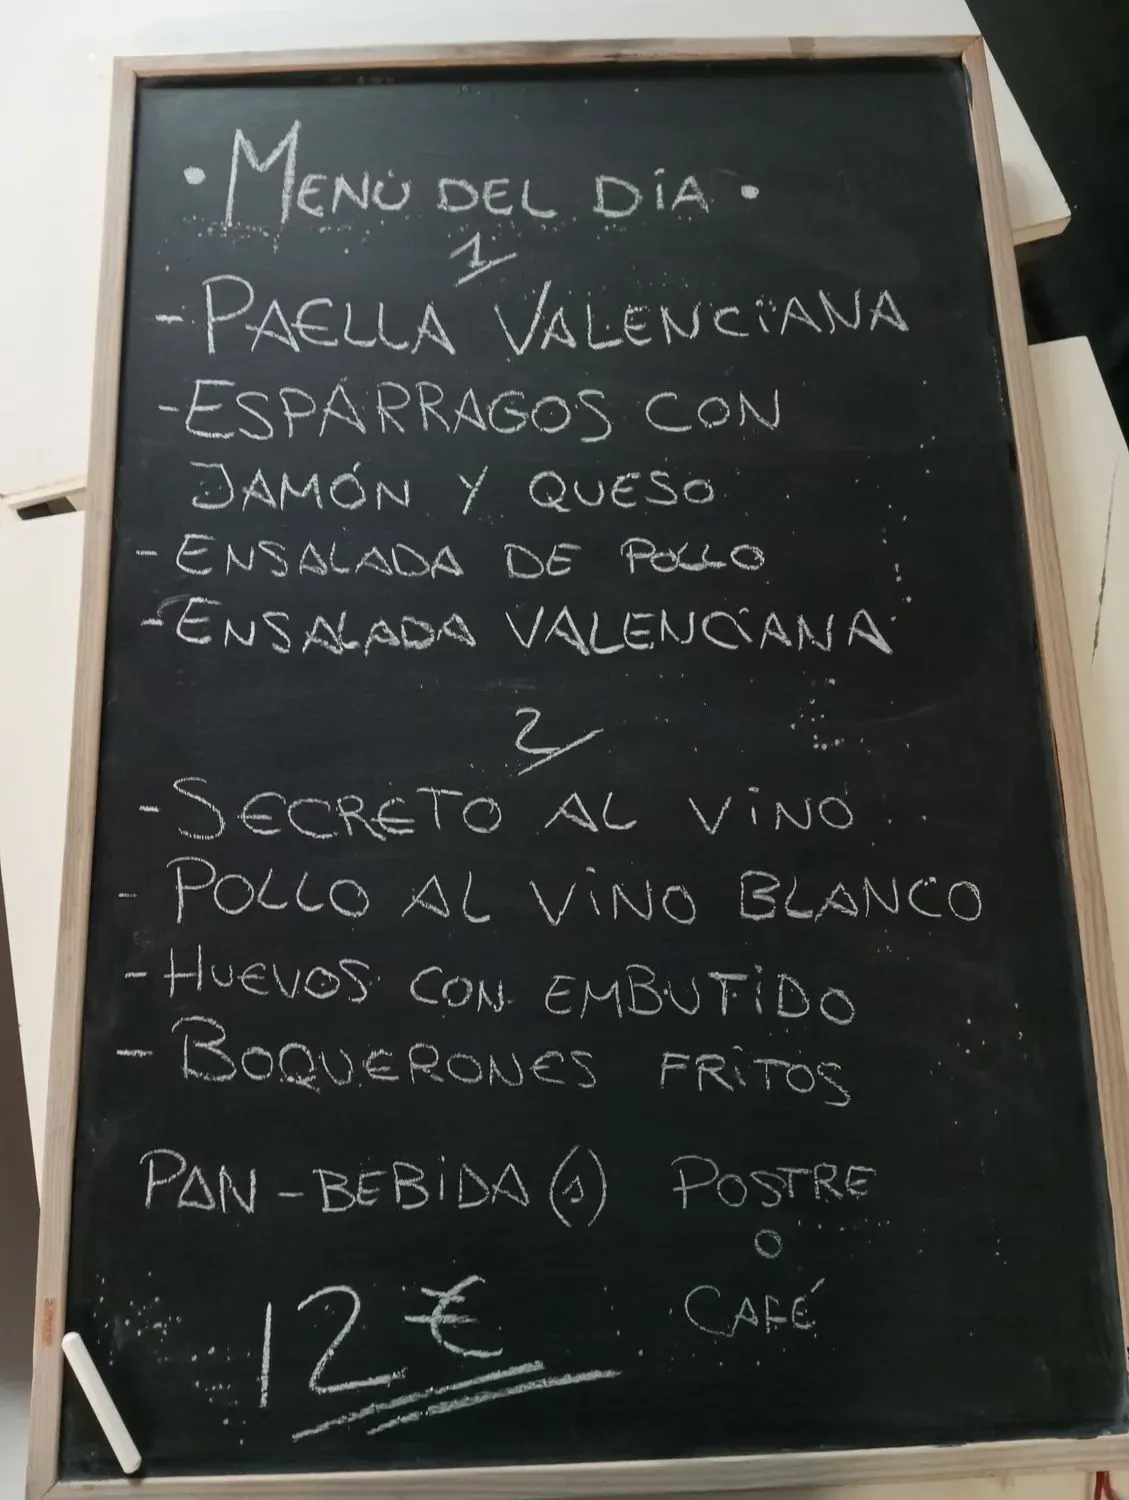 • MENÚ DEL DÍA •
1
- PAELLA VALENCIANA
- ESPÁRRAGOS CON
JAMÓN Y QUESO
- ENSALADA DE POLLO
- ENSALADA VALENCIANA
2
- SECRETO AL VINO
- POLLO AL VINO BLANCO
- HUEVOS CON EMBUTIDO
- BOQUERONES FRITOS
PAN - BEBIDA (1) POSTRE
O
CAFÉ
12 €